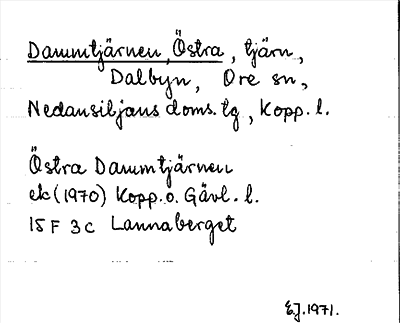 Dammtjärnen, Östra, tjärn,
Dalbyn, Ore sn,
Nedansiljans doms. tg, Kopp. l.
Östra Dammtjärnen
ek (1970) Kopp. o. Gävl. l.
15 F 3 c Lannaberget
E.J. 1971.